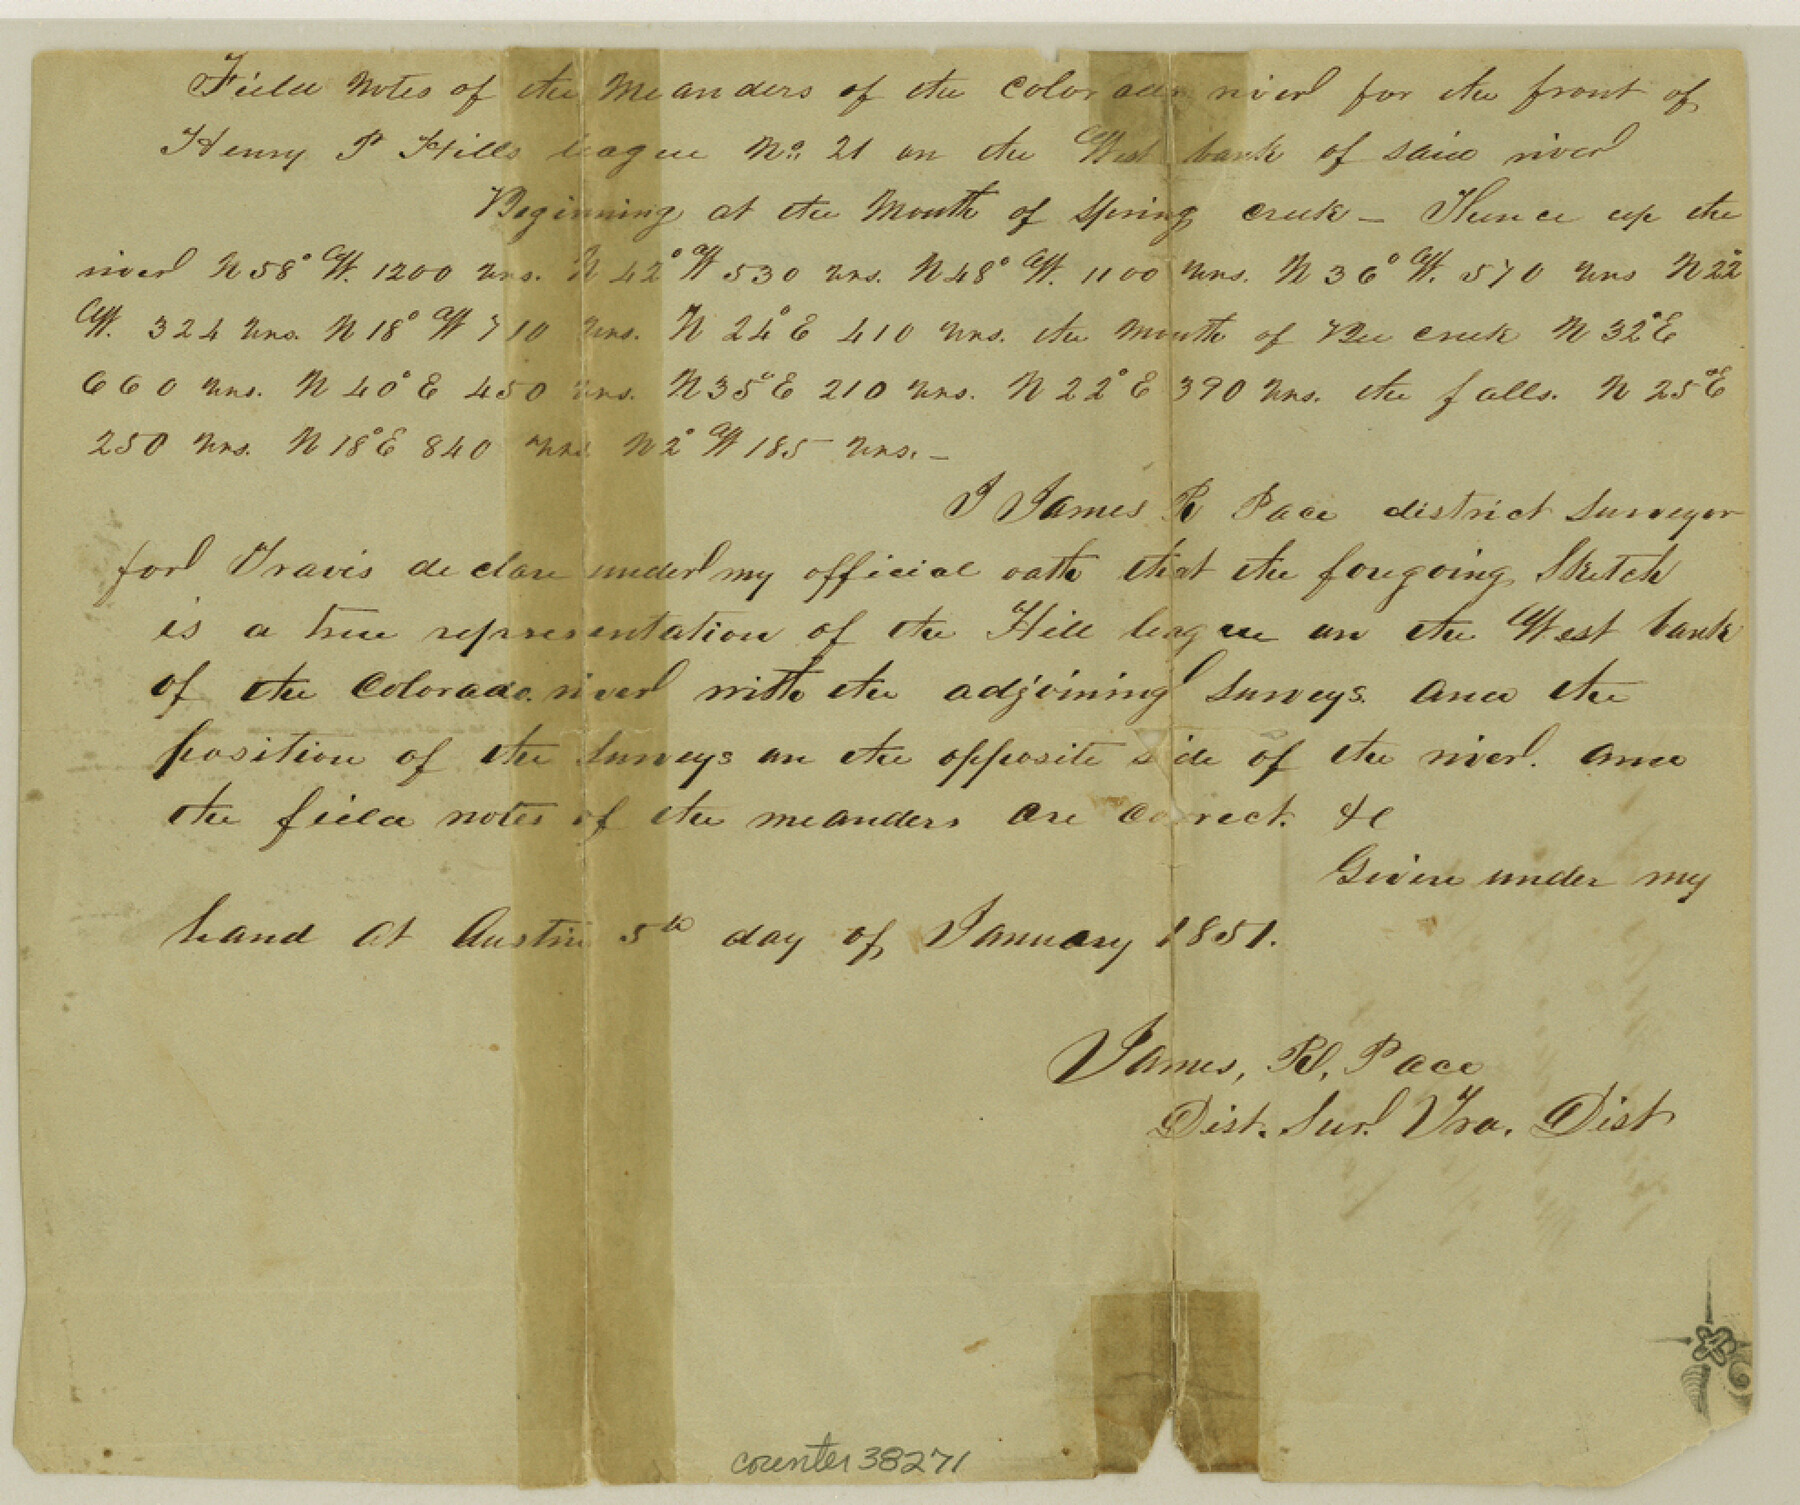 Field Notes of the Meanders of the Colorado river for the front of
Henry P Hills league No. 21 on the West bank of said river
Beginning at the Mouth of Spring creek — Thence up the
river N 58° W. 1200 vrs. N 42° W 530 vrs. N 48° W. 1100 vrs. N 36° W. 570 vrs N 22°
W. 324 vrs. N 18° W 710 vrs. N 24° E 410 vrs. the mouth of Bee creek N 32° E
660 vrs. N 40° E 450 vrs. N 35° E 210 vrs. N 22° E 390 vrs. the falls. N 25° E
250 vrs. N 18° E 840 vrs. N 2° W 185 vrs. —
I James R Pace district Surveyor
for Travis declare under my official oath that the foregoing Sketch
is a true representation of the Hill league on the West bank
of the Colorado river with the adjoining Surveys. and the
position of the Surveys on the opposite side of the river. and
the field notes of the meanders are correct. &c
Given under my
hand at Austin 5th day of January 1851.
James, R, Pace
Dist. Sur. Tra. Dist
counter 38271